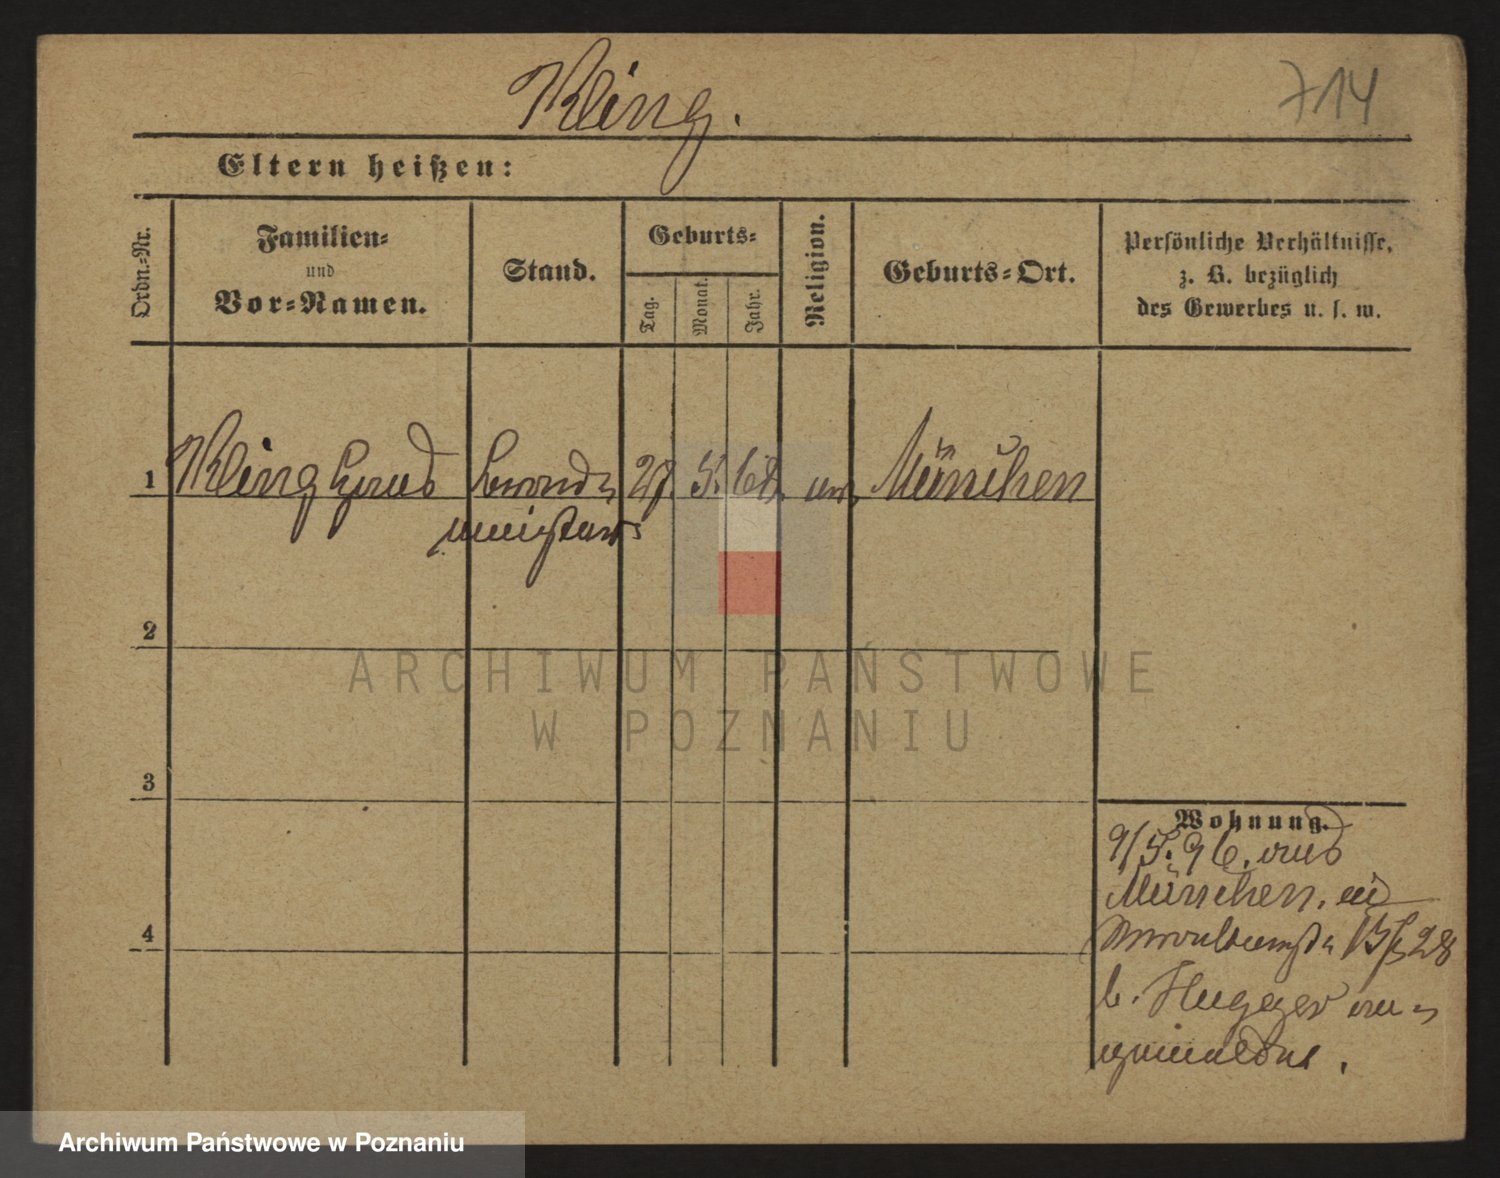 Kling.
714
Eltern heißen:
Ordn.-Nr.
Familien-
und
Vor-Namen.
Stand.
Geburts-
Tag.
Monat.
Jahr.
Religion.
Geburts-Ort.
Persönliche Verhältnisse,
z. B. bezüglich
des Gewerbes u. s. w.
1 Kling Hans Brand- 27. 5. 68. München
meister
2
3
4
Wohnung.
9/5. 96. aus
München, nach
28
b. Hugger an-
gemeldet.
ARCHIWUM PAŃSTWOWE
W POZNANIU
Archiwum Państwowe w Poznaniu